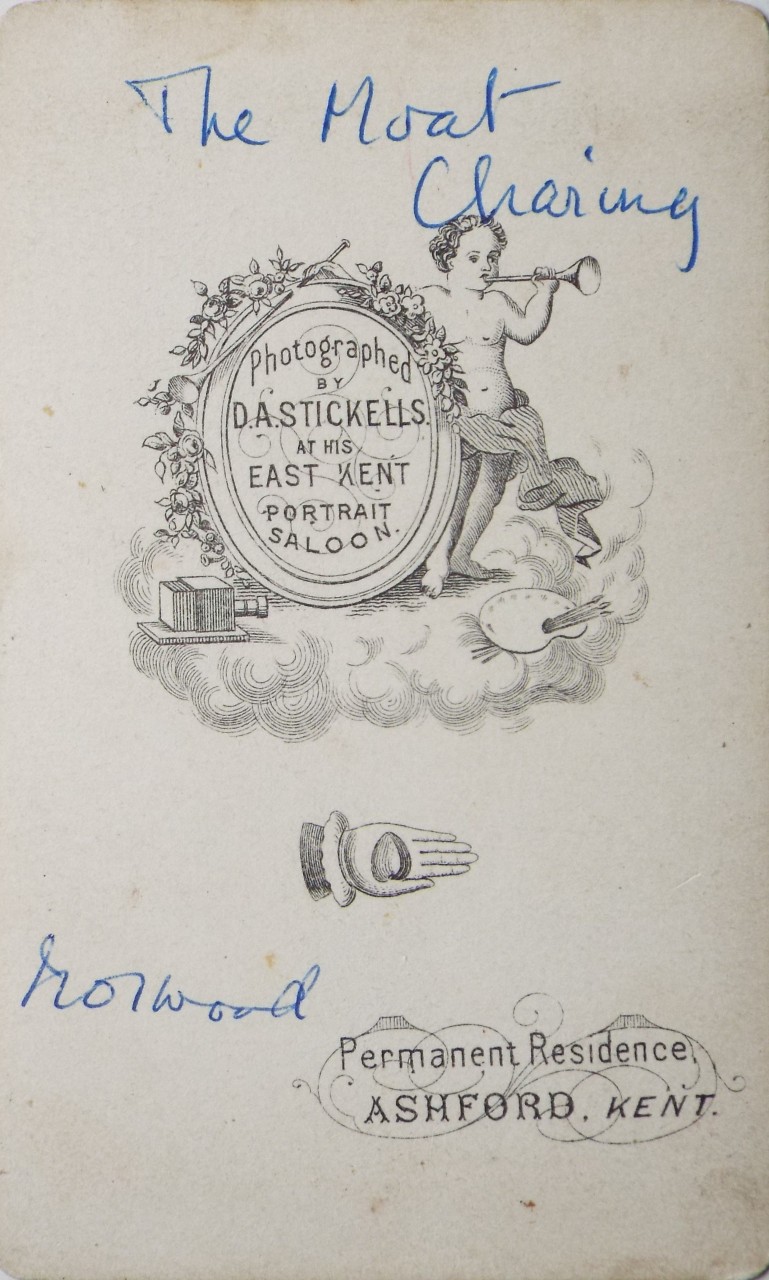 The Moat
Charing
Photographed
BY
D.A.STICKELLS.
AT HIS
EAST KENT
PORTRAIT
SALOON.
Norwood
Permanent Residence,
ASHFORD. KENT.